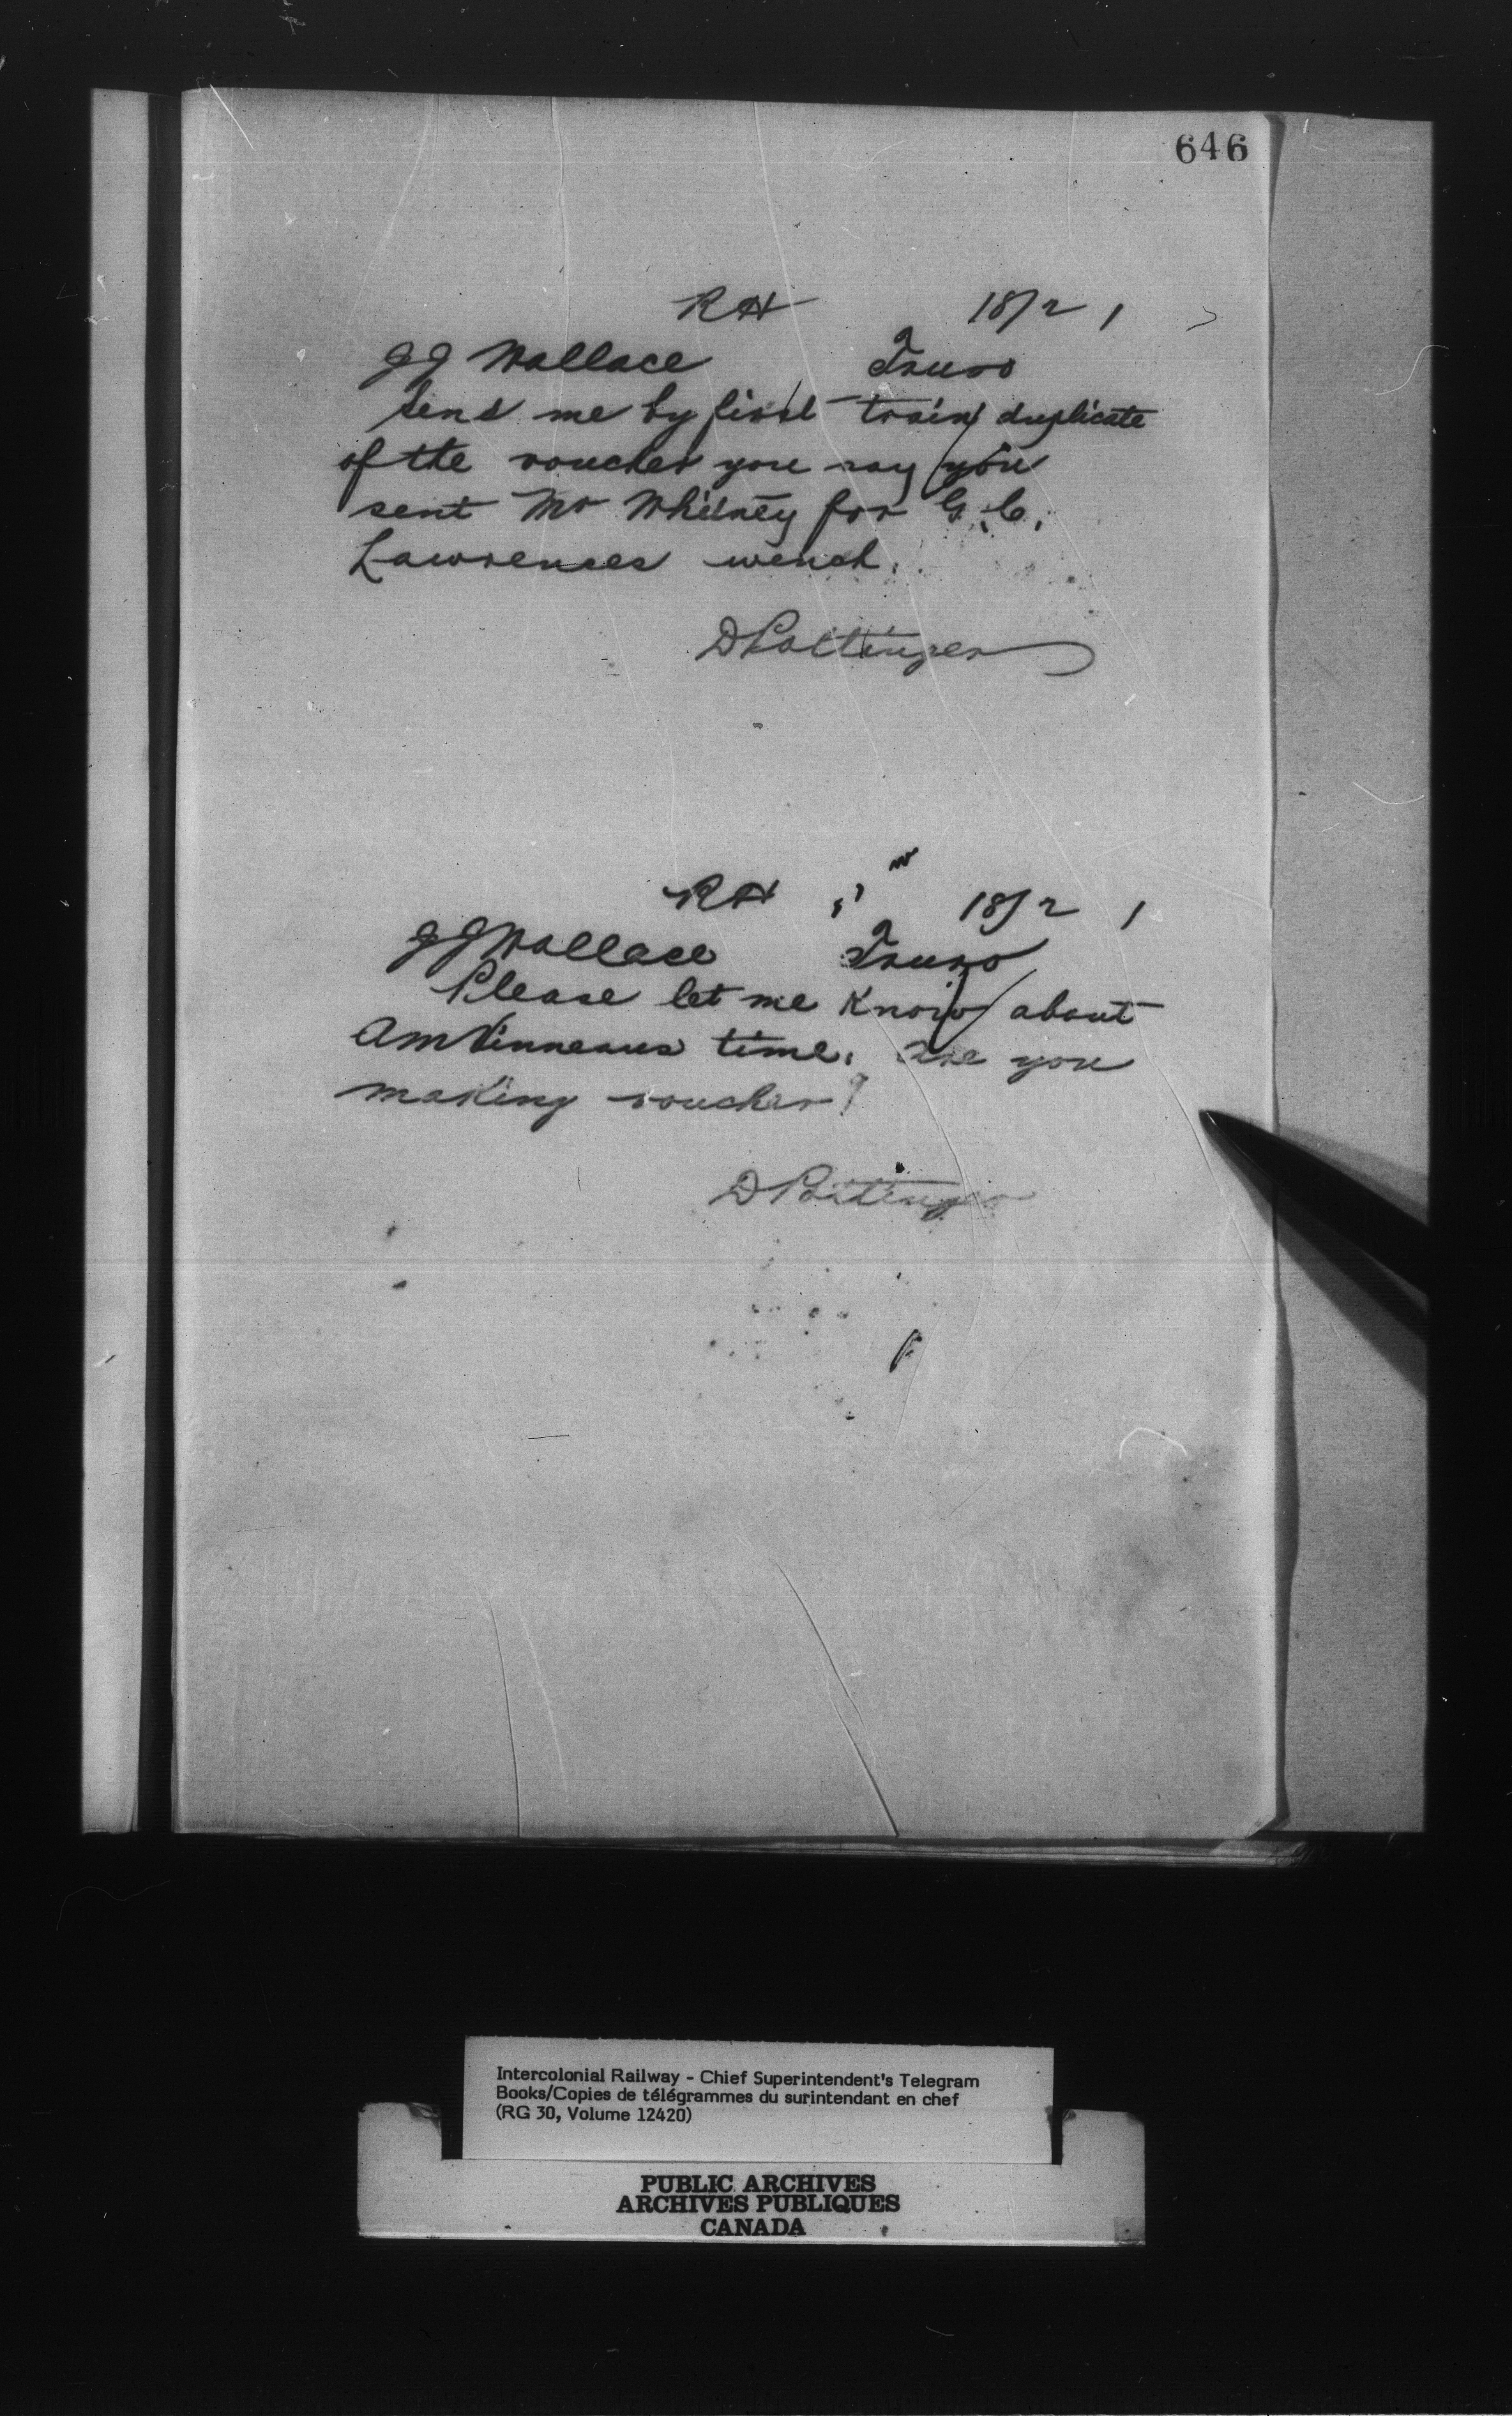 646
RH 18/2 1
JJ Wallace Truro
Send me by first train duplicate
of the voucher you say you
sent Mr Whitney for G.C.
Lawrences winch.
D Pottinger
RH 18/2 1
JJ Wallace Truro
Please let me know about
AM Vinneaus time. Are you
making voucher?
D Pottinger
Intercolonial Railway - Chief Superintendent's Telegram
Books/Copies de télégrammes du surintendant en chef
(RG 30, Volume 12420)
PUBLIC ARCHIVES
ARCHIVES PUBLIQUES
CANADA